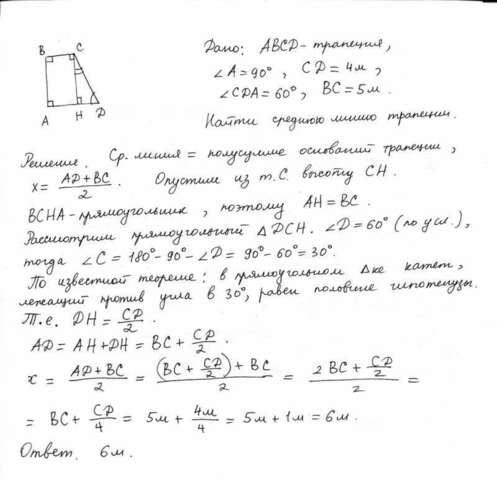 B C
A H D
Дано: ABCD - трапеция,
∠A = 90°, CD = 4м,
∠CDA = 60°, BC = 5м.
Найти среднюю линию трапеции.
Решение. Ср. линия = полусумме оснований трапеции,
x = (AD + BC)/2. Опустим из т. C высоту CH.
BCHA - прямоугольник, поэтому AH = BC.
Рассмотрим прямоугольный Δ DCH. ∠D = 60° (по усл.),
тогда ∠C = 180° - 90° - ∠D = 90° - 60° = 30°.
По известной теореме: в прямоугольном Δке катет,
лежащий против угла в 30°, равен половине гипотенузы.
Т.е. DH = CD/2.
AD = AH + DH = BC + CD/2.
x = (AD + BC)/2 = ((BC + CD/2) + BC)/2 = (2BC + CD/2)/2 =
= BC + CD/4 = 5м + 4м/4 = 5м + 1м = 6м.
Ответ. 6м.